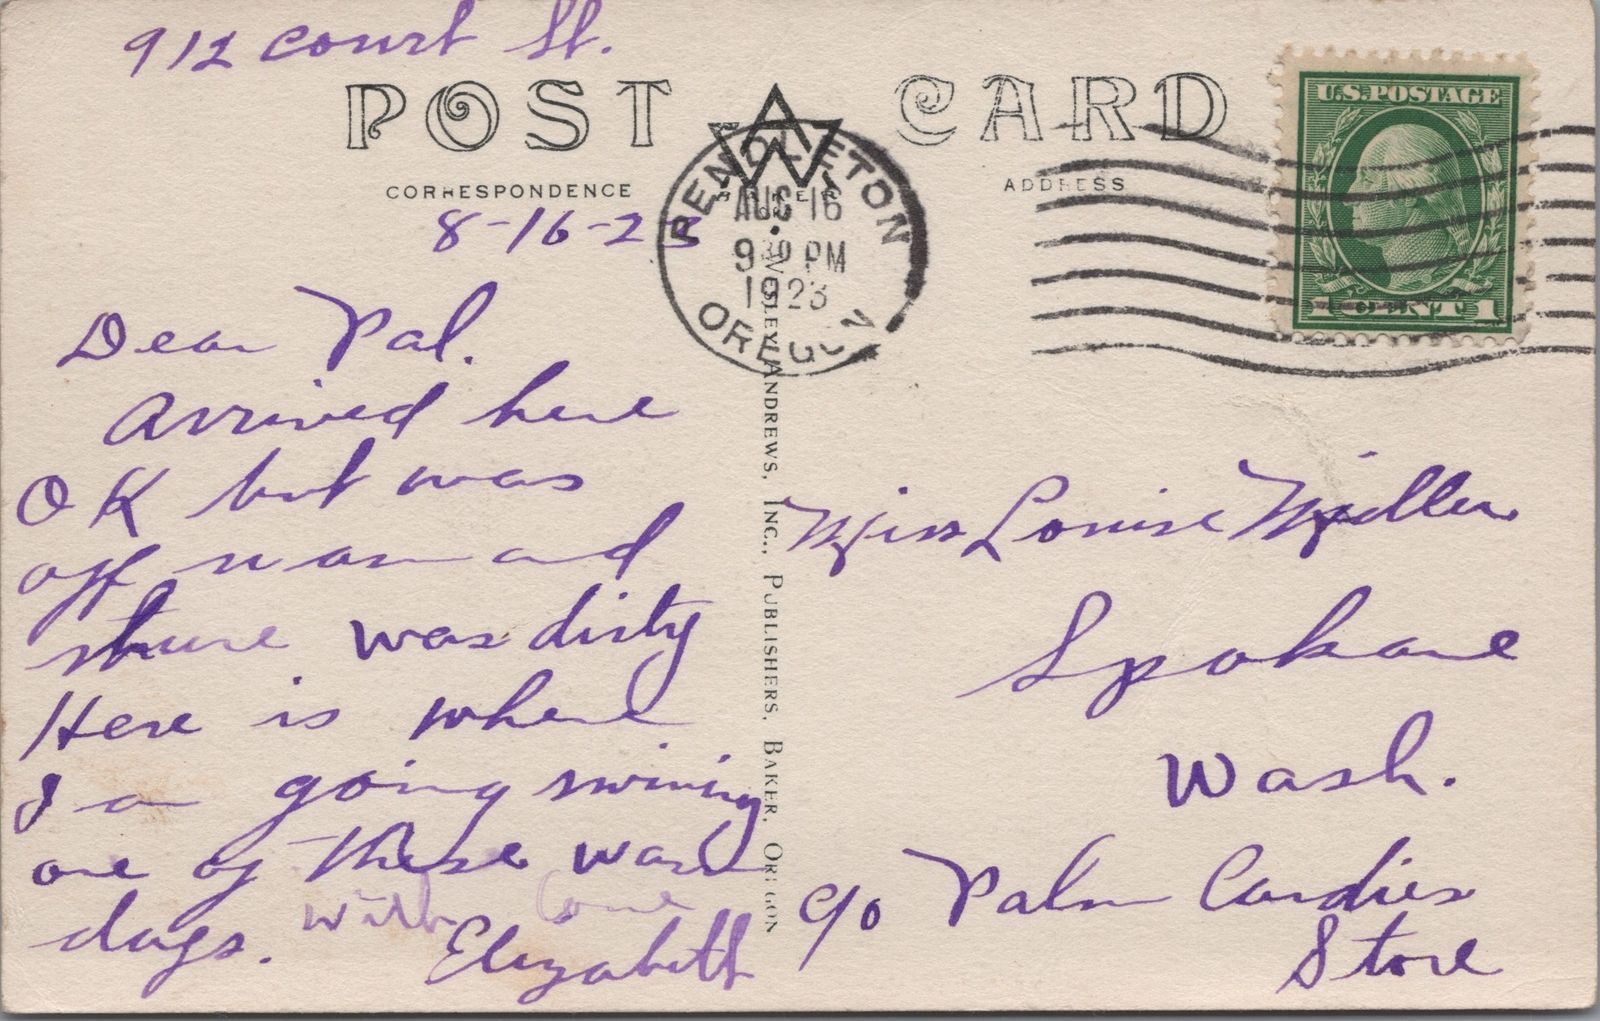 912 Court St.
POST CARD
CORRESPONDENCE
ADDRESS
8-16-23
PENDLETON
AUG 16
930 PM
1923
OREGON
U.S. POSTAGE
1 CENT 1
Dear Pal.
Arrived here
OK but was
off nom and
shure was dirty
Here is where
I a going swiming
one of these warm
days.
with love
Elizabeth
WESLEY ANDREWS, INC., PUBLISHERS, BAKER, OREGON
Miss Louise Miller
Spokane
Wash.
c/o Palm Candies
Store